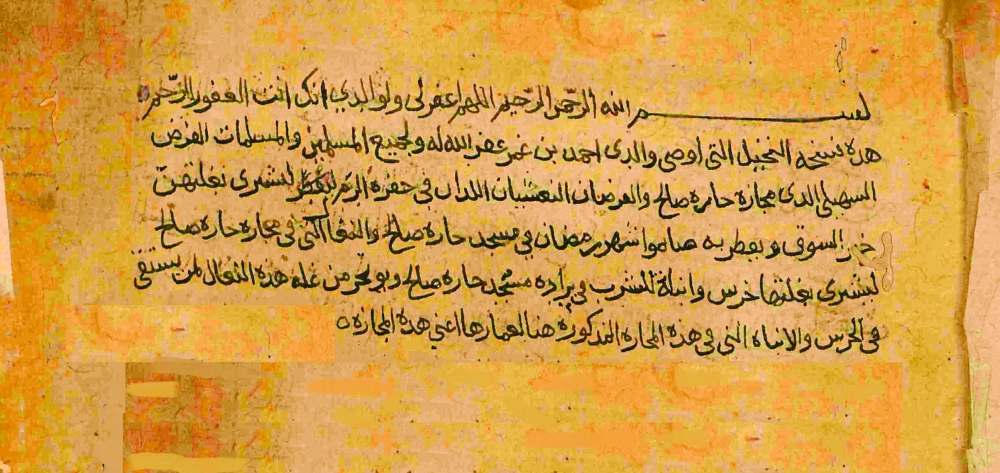 بسم الله الرحمن الرحيم اللهم اغفر لي ولوالدي انك انت الغفور الرحيم
هذه نسخة النخيل التي اوصى والدي احمد بن عمر غفر الله له ولجميع المسلمين والمسلمات الفرض
السهيلي الذي مجازة حارة صالح والفرضان النغشيان اللذان في حفرة الرم ليشترى بغلتهن
خبز السوق ويفطر به صاموا شهر رمضان في مسجد حارة صالح والنغال التي في مجازة حارة صالح
ليشترى بغلتها خرس واناة للشرب في برادة مسجد حارة صالح ويوجر من غلة هذه النغال لمن يستقي
في الخرس والاناة التي في هذه المجازة المذكورة هنا لعمارها اعني هذه المجازة